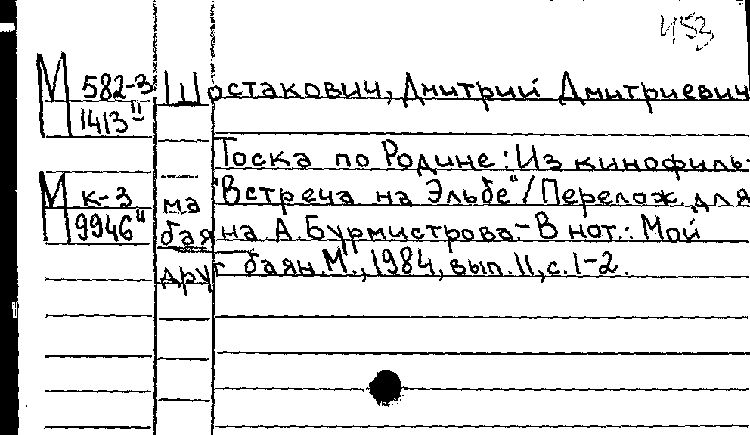 453
М 582-3 Шостакович, Дмитрий Дмитриевич
1413"
Тоска по Родине: Из кинофиль-
М к-3 ма "Встреча на Эльбе"/Перелож. для
9946" баяна А.Бурмистрова.-В нот.: Мой
друг баян.М., 1984, вып.11, с.1-2.